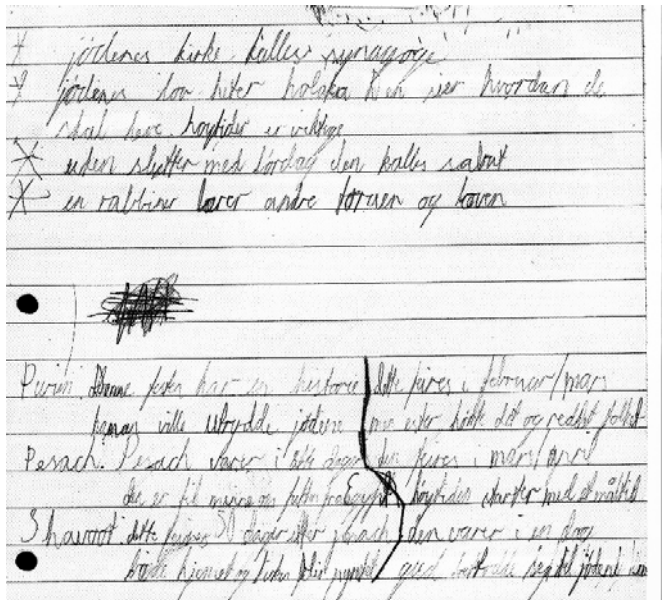 jødenes kirke kalles synagoge
jødenes lov heter halaka den sier hvordan de
skal leve. høytider er viktige
uken slutter med lørdag den kalles sabat
en rabbiner lærer andre toraen og loven
Purim. denne festen har en historie dette feires i februar/mars
haman ville utrydde jødene men ester hørte det og reddet folket
Pesach. Pesach varer i åtte dager den feires i mars/april
den er til minne om fra Egypt høytiden starter med et måltid
Shavuot dette feires 50 dager etter pesach den varer i en dag
både hjemmet og blir pyntet gud seg til jødene